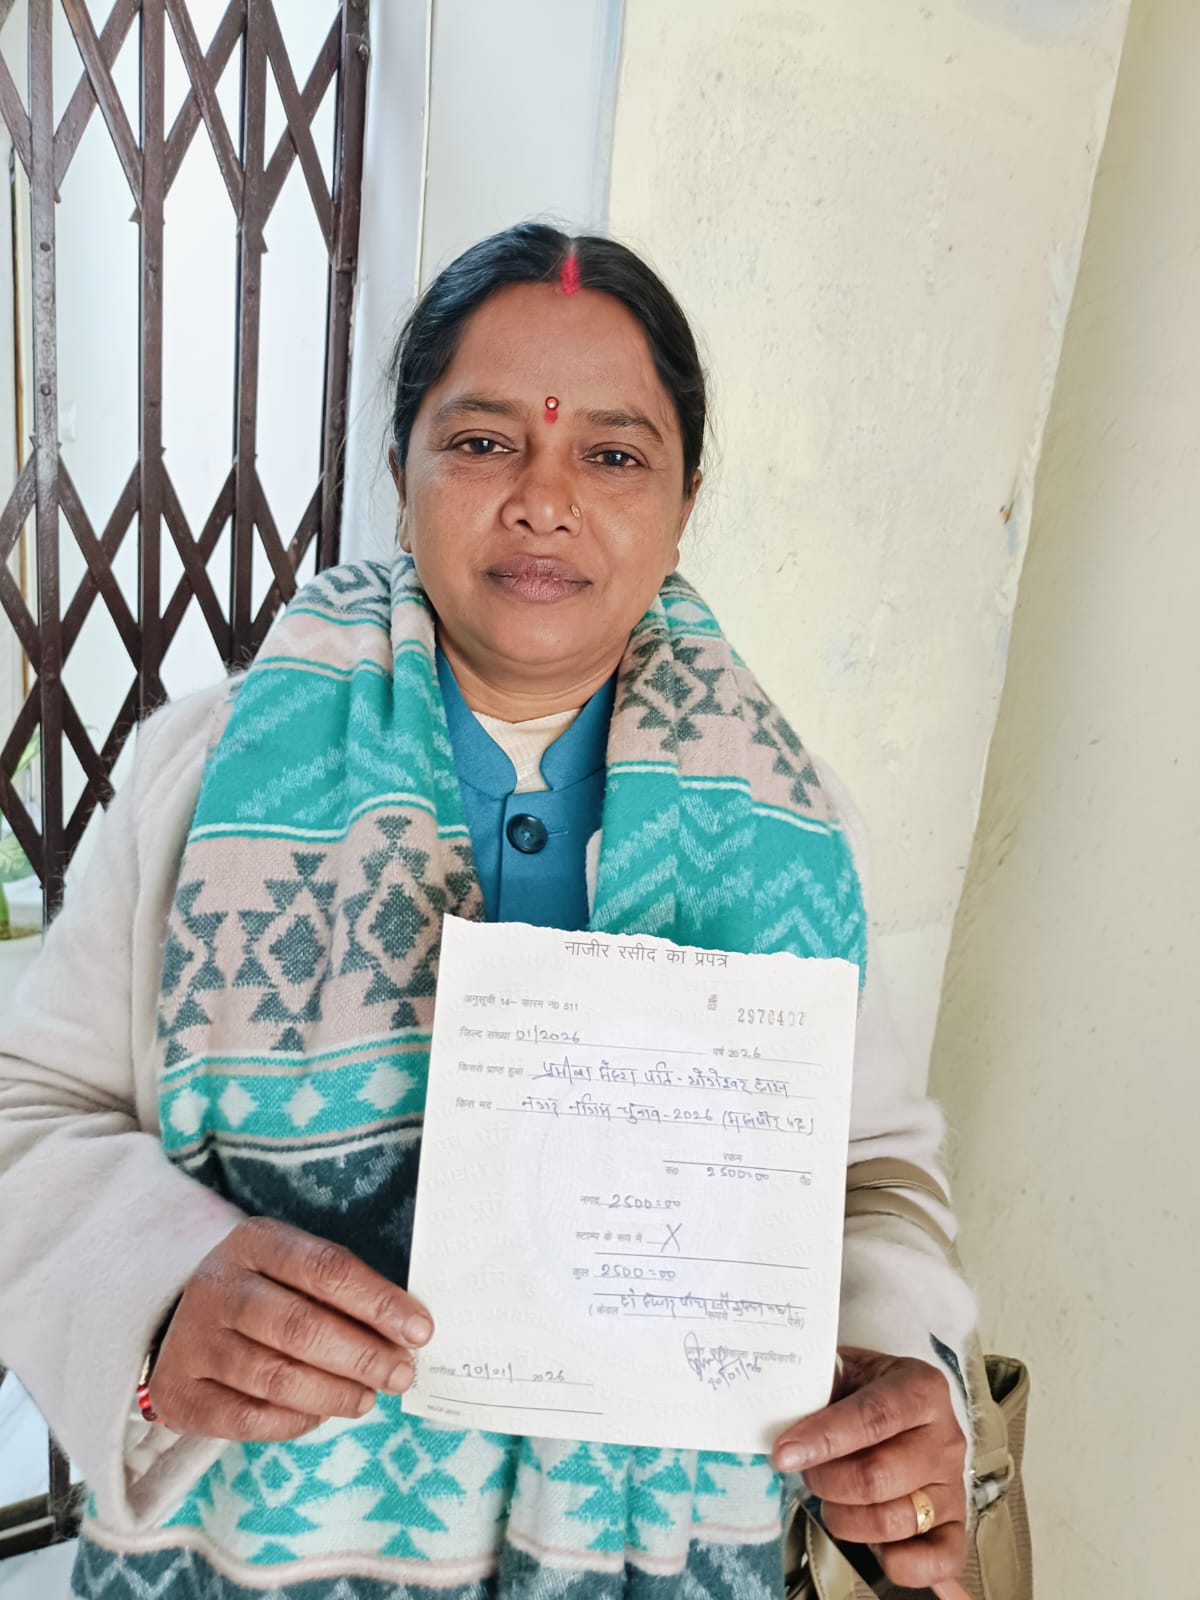 नाजीर रसीद का प्रपत्र
अनुसूची 14- फारम नं0 511
2970407
जिल्द संख्या 01/2026 वर्ष 2026
किससे प्राप्त हुआ प्रमिला मेहरा पति - योगेश्वर दास
किस मद नगर निगम चुनाव-2026 (महापौर पद)
रकम
रू0 2500=00 पै0
नगद 2500=00
स्टाम्प के रूप में X
कुल 2500=00
(केवल दो हजार पाँच सौ रूपये पैसे)
पदाधिकारी।
20/01/26
तारीख 20/01/ 2026